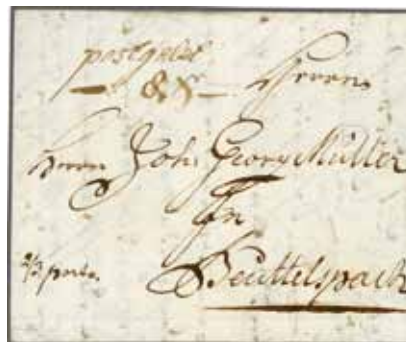 postgeld
Herrn
Herrn Joh, Georg Müller
In
Beuttelspach